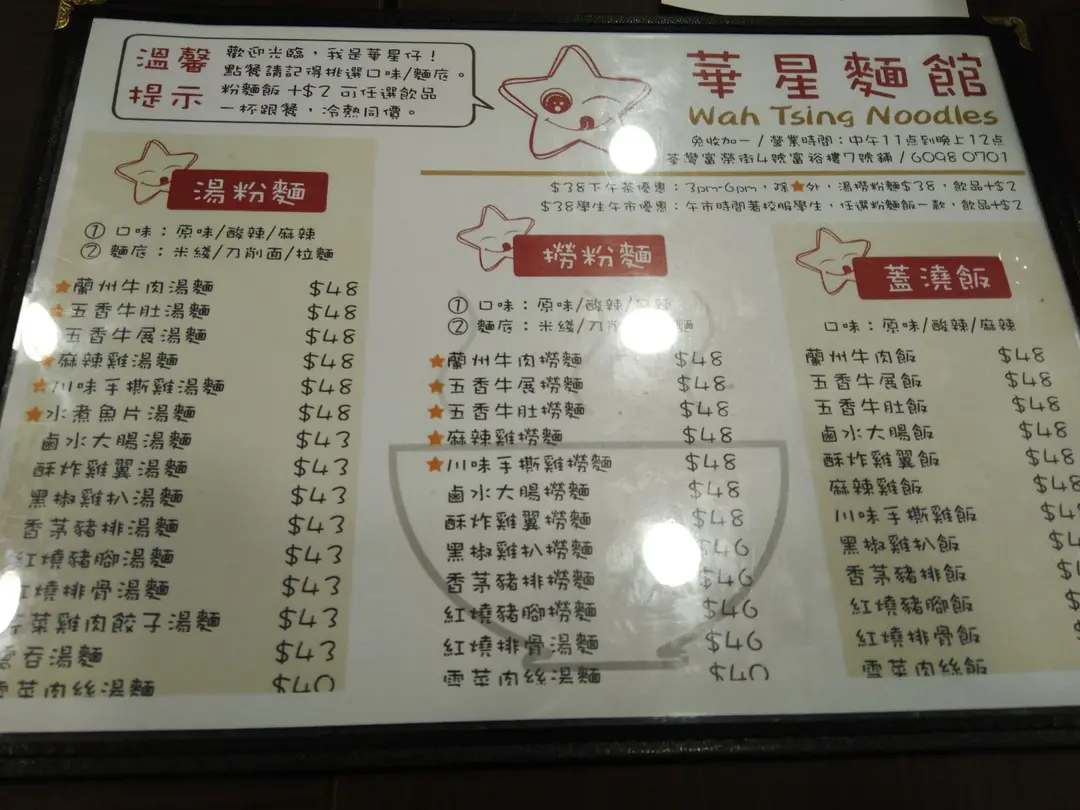 溫馨提示
歡迎光臨，我是華星仔！
點餐請記得挑選口味/麵底。
粉麵飯 +$2 可任選飲品
一杯跟餐，冷熱同價。
華星麵館
Wah Tsing Noodles
免收加一 / 營業時間：中午11点到晚上12点
荃灣富榮街4號富裕樓7號鋪 / 6098 0701
$38下午茶優惠：3pm-6pm，除★外，湯撈粉麵$38，飲品+$2
$38學生午市優惠：午市時間著校服學生，任選粉麵飯一款，飲品+$2
湯粉麵
① 口味：原味/酸辣/麻辣
② 麵底：米綫/刀削面/拉麵
★蘭州牛肉湯麵 $48
★五香牛肚湯麵 $48
五香牛展湯麵 $48
★麻辣雞湯麵 $48
★川味手撕雞湯麵 $48
★水煮魚片湯麵 $48
鹵水大腸湯麵 $43
酥炸雞翼湯麵 $43
黑椒雞扒湯麵 $43
香茅豬排湯麵 $43
紅燒豬腳湯麵 $43
紅燒排骨湯麵 $43
菜雞肉餃子湯麵 $43
雲吞湯麵 $43
雪菜肉絲湯麵 $40
撈粉麵
① 口味：原味/酸辣/麻辣
② 麵底：米綫/刀削 麵
★蘭州牛肉撈麵 $48
★五香牛展撈麵 $48
★五香牛肚撈麵 $48
★麻辣雞撈麵 $48
★川味手撕雞撈麵 $48
鹵水大腸撈麵 $48
酥炸雞翼撈麵 $48
黑椒雞扒撈麵 $46
香茅豬排撈麵 $46
紅燒豬腳撈麵 $46
紅燒排骨湯麵 $46
雪菜肉絲湯麵 $40
蓋澆飯
口味：原味/酸辣/麻辣
蘭州牛肉飯 $48
五香牛展飯 $48
五香牛肚飯 $48
鹵水大腸飯 $48
酥炸雞翼飯 $48
麻辣雞飯 $48
川味手撕雞飯
黑椒雞扒飯
香茅豬排飯
紅燒豬腳飯
紅燒排骨飯
雪菜肉絲飯